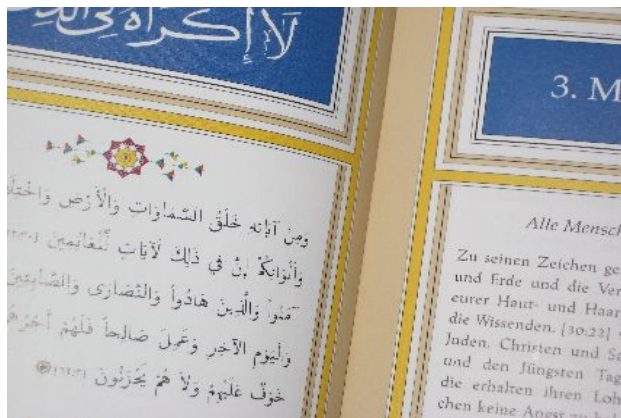 لَا إِكْرَاهَ فِي
وَمِنْ آيَاتِهِ خَلْقُ السَّمَاوَاتِ وَالْأَرْضِ
وَأَلْوَانِكُمْ إِنَّ فِي ذَلِكَ لَآيَاتٍ لِّلْعَالِمِينَ
آمَنُوا وَالَّذِينَ هَادُوا وَالنَّصَارَى وَالصَّابِئِينَ
وَالْيَوْمِ الآخِرِ وَعَمِلَ صَالِحاً فَلَهُمْ أَجْرُهُمْ
خَوْفٌ عَلَيْهِمْ وَلاَ هُمْ يَحْزَنُونَ
3. M
Alle Mensch
Zu seinen Zeichen ge
und Erde und die Ver
eurer Haut- und Haar
die Wissenden. [30:22]
Juden, Christen und Sa
und den Jüngsten Tag
die erhalten ihren Loh
chen keine Angst